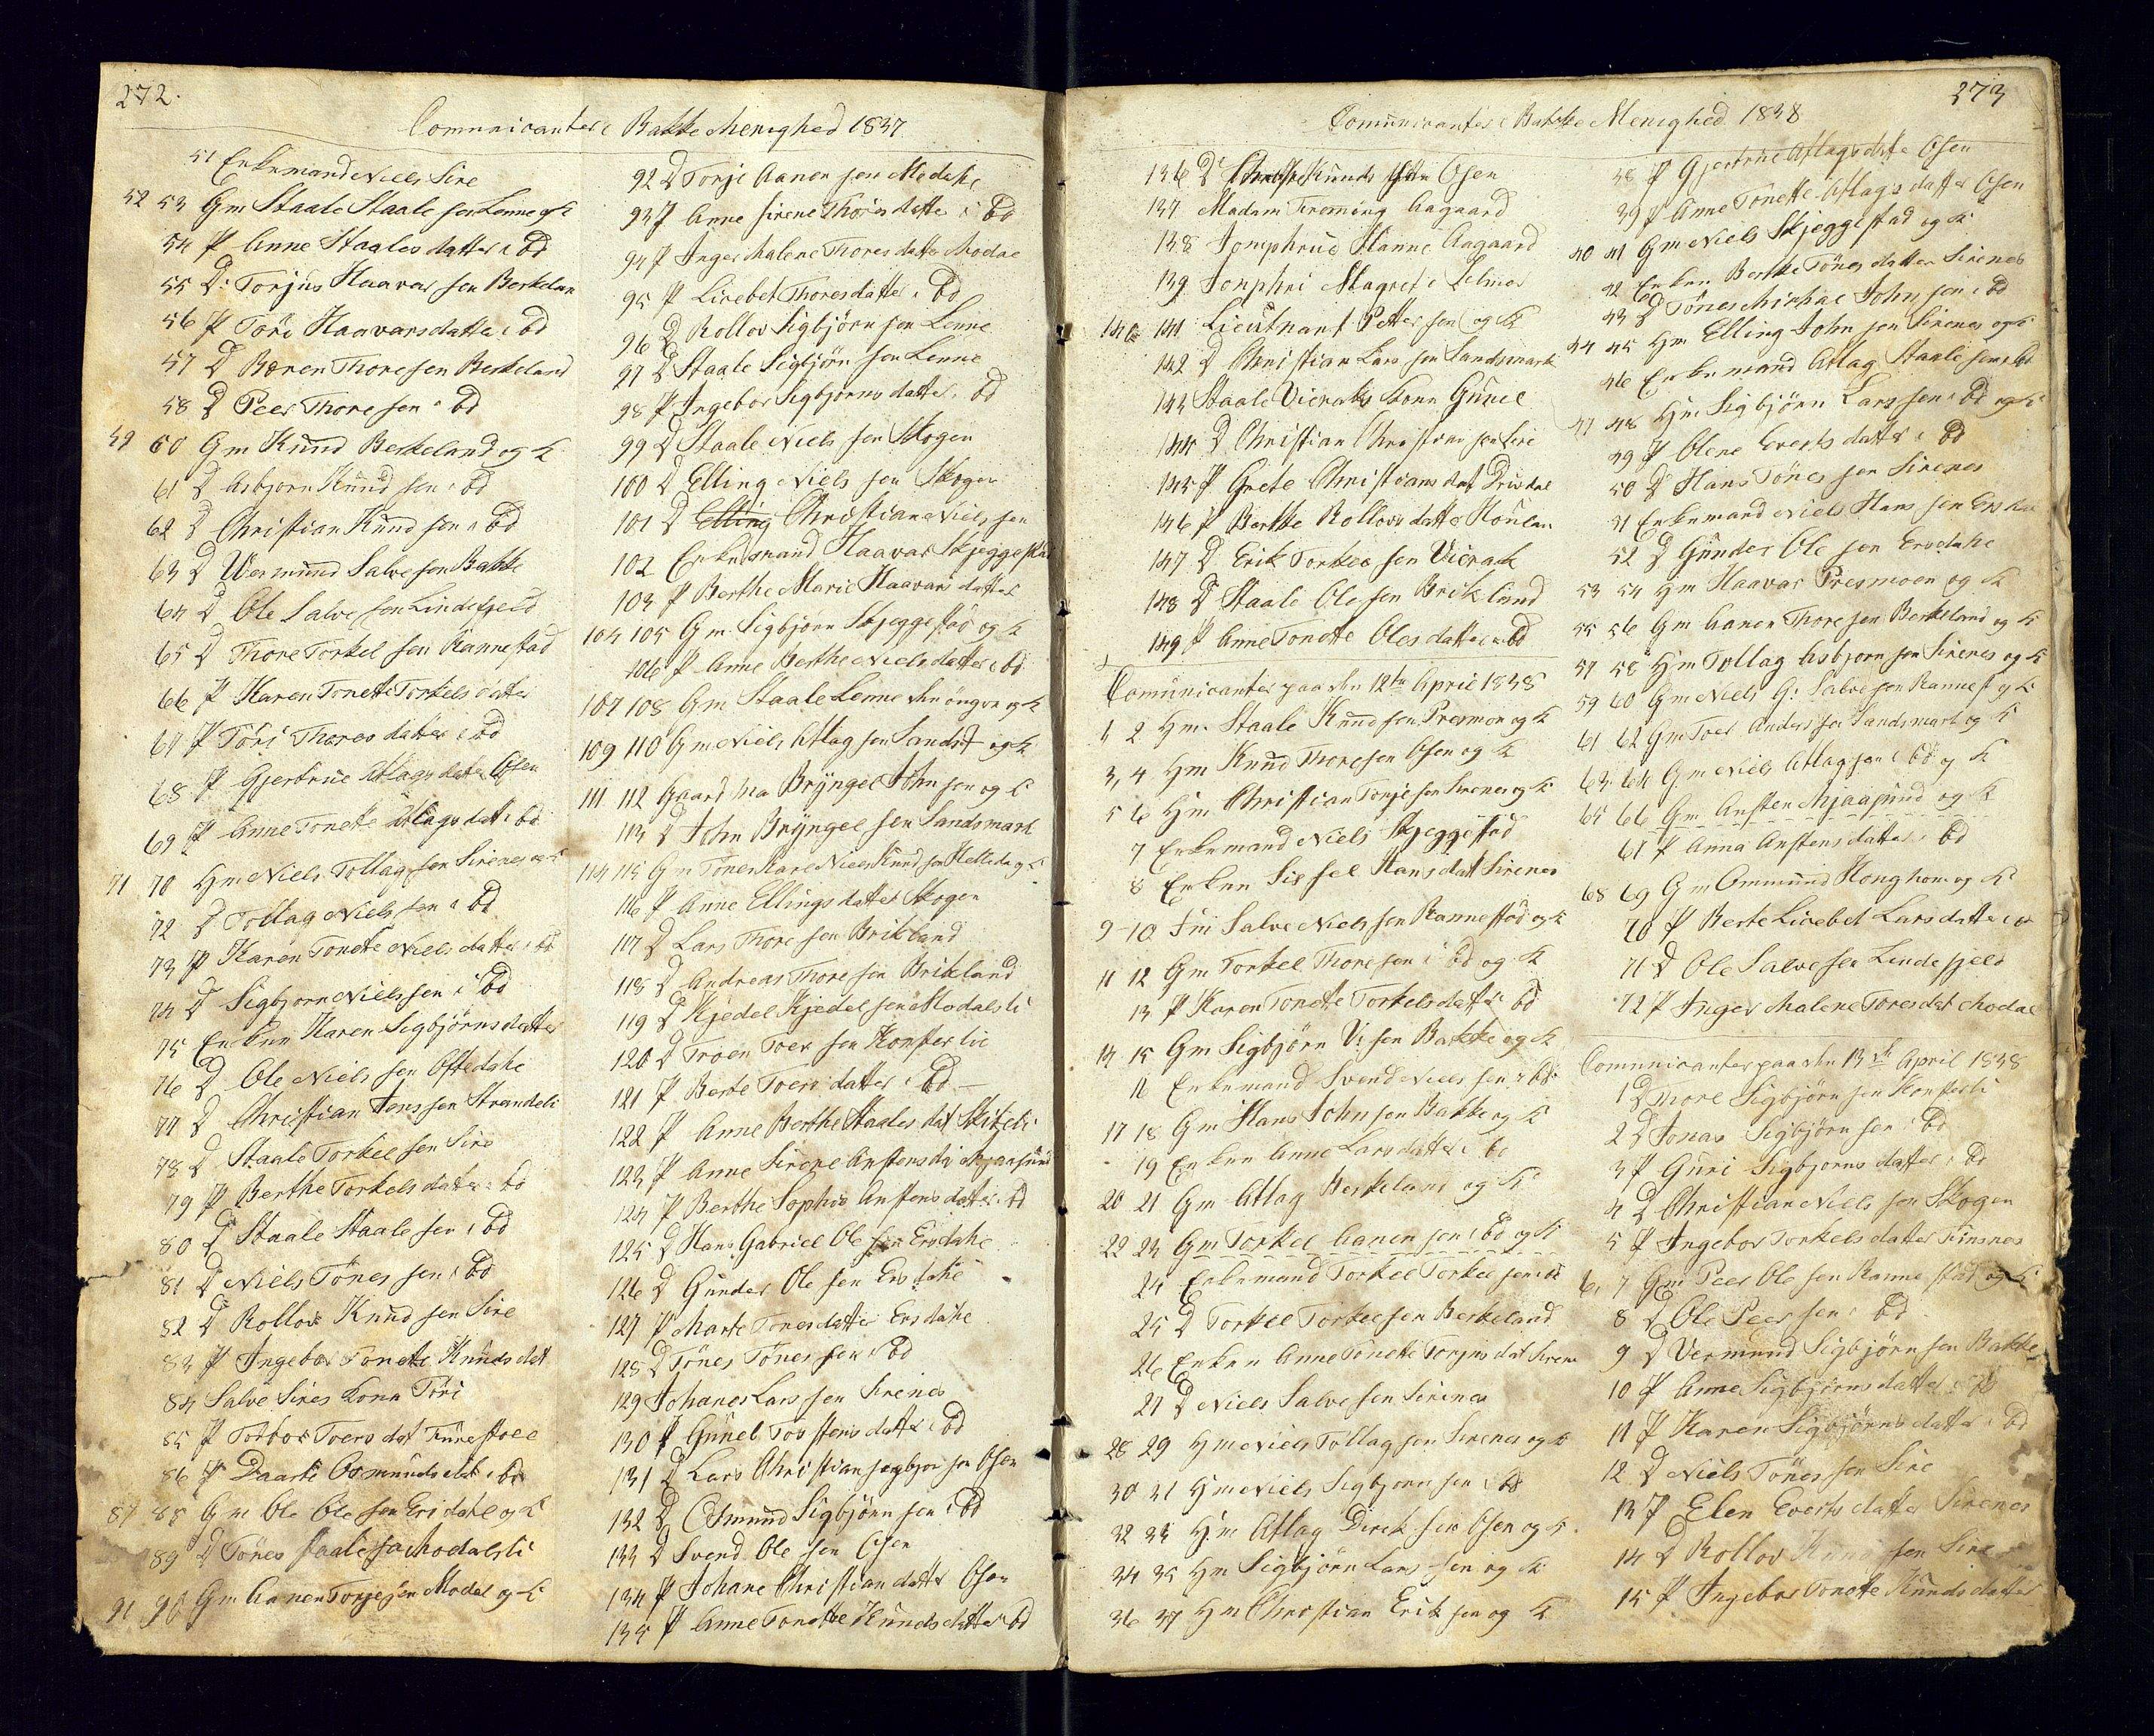 272.
Communicanter i Bakke Menighed 1837
51 Enkemand Niels Sire
52 53 Gm Staale Staale sen Lenne og K
54 P Anne Staales datter i bd
55 D: Torjus Haavar sen Berkelan
56 P Tori Haavarsdatter i bd
57 D Bæren Thore sen Berkeland
58 D Peer Thore sen i bd
59 60 Gm Knud Berkeland og K
61 D Asbjorn Knud sen i bd
62 D Christian Knud sen i bd
63 D Vermund Salve sen Bakke
64 D Ole Salve sen Lindefjeld
65 D Thore Torkel sen Rannestad
66 P Karen Tonete Torkels datter
67 P Tori Thores datter i bd
68 P Gjertrue Atlags datter Osen
69 P Anne Tonete Atlags dat i bd
71 70 Hm Niels Tollag sen Sirenes og K
72 D Tollag Niels sen i bd
73 P Karen Tonete Niels datter i bd
74 D Sigbjorn Niels sen i bd
75 Enken Karen Sigbjörns datter
76 D Ole Niels sen Oftedahe
77 D Christian Jens sen Strandeli
78 D Staale Torkel sen Sire
79 P Berthe Torkels datter i bd
80 D Staale Staale sen i bd
81 D Niels Tönes sen i bd
82 D Rollov Knud sen Sire
83 P Ingebor Tonete Knuds dat
84 Salve Sires Kone Tori
85 P Torbor Toers dat Tunestoel
86 P Daarte Osmunds dat i bd
87 88 Gm Ole Ole sen Ersdahl og K
89 D Tönes Staale sen Modalsli
91 90 Gm Aanen Torje sen Modal og K
92 D Torje Aanen sen Modahe
93 P Anne Sirene Thores datter i bd
94 P Inger Malene Thores datter Modae
95 P Lisebet Thoresdatter i bd
96 D Rollov Sigbjörn sen Lenne
97 D Staale Sigbjörn sen Lenne
98 P Ingebor Sigbjorns datter i bd
99 D Staale Niels sen Skogen
100 D Elling Niels sen Skogen
101 D Elling Christian Niels sen
102 Enkemand Haavar Skjeggestad
103 P Berthe Marie Haavars datter
104 105 Gm Sigbjorn Skjeggestad og K
106 P Anne Berthe Niels datter i bd
107 108 Gm Staale Lenne den öngre og K
109 110 Gm Niels Atlag sen Sandst og K
111 112 Gaard ma Bryngel John sen og K
113 D John Bryngel sen Sandsmark
114 115 Gm Tönes Kare Niels Knud sen Helleda og K
116 P Anne Ellings datter Skogen
117 D Lars Thore sen Brikland
118 D Andreas Thore sen Brikland
119 D Kjedel Kjedel sen Modalsli
120 D Troen Toer sen Honserlie
121 P Berte Toers datter i bd
122 P Anne Berthe Staales dat Skibeli
123 P Anne Sirene Anstens da Mjaasund
124 P Berthe Sophie Anstens datter i bd
125 D Hans Gabriel Ole sen Ersdahe
126 D Gunder Ole sen Ersdahe
127 P Marte Tones datter Ersdahe
128 D Tönes Tönes sen i bd
129 Johanes Lars sen Sirenes
130 P Gunel Tostens datter i bd
131 D Lars Christian Segbjor sen Osen
132 D Osmund Sigbjörn sen i bd
133 D Svend Ole sen Osen
134 P Johane Christian datter Osen
135 P Anne Tonette Knuds datter i bd
273
Communicanter i Bakke Menighed 1838
136 D Knuds Osen
137 Madam Froming Aagaard
138 Jomphrue Hanne Aagaard
139 Jomphri Magrete Selmer
140 141 Lieutnant Petter sen og K
142 D Christian Lars sen Sandsmark
143 Staale Vieraks Kone Gunel
144 D Christian Christian sen Sire
145 P Grete Christians dat Drivdal
146 P Berthe Rollovs datter Houlan
147 D Erik Torkel sen Vierak
148 D Staale Ole sen Briklund
149 P Anne Tonette Oles datter i bd
Communicanter paa den 12te April 1838
1 2 Hm. Staale Knud sen Presmon og K
3, 4 Hm Knud Thore sen Osen og K
5 6 Hm Christian Torje sen Sirenes og K
7 Enkemand Niels Skjeggestad
8 Enken Sissel Hans dat Sirenes
9-10 Gm Salve Niels sen Rannestad og K
11 12 Gm Torkel Thore sen i bd og K
13 P Karen Tonette Torkels datter i bd
14 15 Gm Sigbjörn V: sen Bakke og K
16 Enkemand Svend Niels sen i bd
17 18 Gm Hans John sen Bakke og K
19 Enken Anne Lars datter i bd
20 21 Gm Atlag Berkeland og K
22 23 Gm Torkel Aanen sen i bd og K
24 Enkemand Torkel Torkel sen i bd
25 D Torkel Torkel sen Berkeland
26 Enken Anne Tonette Torjus dat Sirene
27 D Niels Salve sen Sirenes
28 29 Hm Niels Tollag sen Sirenes og K
30 31 Hm Niels Sigbjorn sen i bd
32 33 Hm Atlag Direk sen Osen og K.
34 35 Hm Sigbjörn Lars sen og K
36 37 Hm Christian Erik sen og K
38 P Gjertrue Atlags datte Osen
39 P Anne Tonette Atlags datter Osen
40 41 Gm Niels Skjeggestad og K
42 Enken Berthe Tönes datter Sirenes
43 D Tönes Michal John sen i bd
44 45 Hm Elling John sen Sirenes og K
46 Enkemand Atlag Staale sen i bd
47 48 Hm Sigbjörn Lars sen i bd og K
49 P Olene Everts datter i bd
50 D Hans Tönes sen Sirenes
51 Enkemand Niels Hans sen Ersdae
52 D Gunder Ole sen Ersdahe
53 54 Hm Haavar Presmoen og K
55 56 Gm Aanen Thore sen Berkeland og K
57 58 Hm Tollag Asbjorn sen Sirenes og K
59 60 Gm Niels G: Salve sen Rannest og K
61 62 Gm Toer Anders sen Sandsmark og K
63 64 Gm Niels Atlag sen i bd og K
65 66 Gm Ansten Mjaasund og K
67 P Anna Anstens datter i bd
68 69 Gm Ommund Honghom og K
70 P Berte Lisebet Lars datter i bd
71 D Ole Salve sen Lindefjeld
72 P Inger Malene Tores dat Modal
Communicanter paa den 13de April 1838
1 D Thore Sigbjörn sen Honserli
2 D Jonas Sigbjörn sen i bd
3 P Guri Sigbjorns datter i bd
4 D Christian Niels sen Skogen
5 P Ingebor Torkels datter Tinsnes
6, 7 Gm Peer Ole sen Rannestad og K
8 D Ole Peer sen i bd
9 D Vermund Sigbjörn sen Bakke
10 P Anne Sigbjörns datter i bd
11 P Karen Sigbjörns datter i bd
12 D Niels Tönes sen Sire
13 P Elen Everts datter Sirenes
14 D Rollov Knud sen Sire
15 P Ingebor Tonette Knuds datter